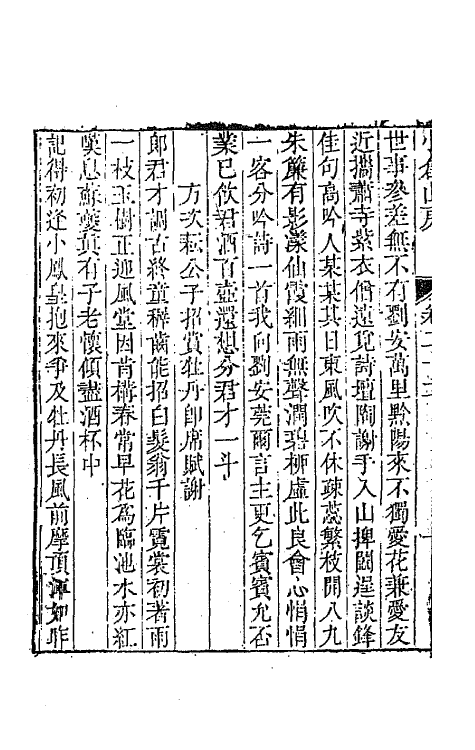 小倉山房
卷二十
世事參差無不有劉安萬里黔陽來不獨愛花兼愛友
近攜蕭寺紫衣僧遠覓詩壇陶謝手入山捭闔逞談鋒
佳句高吟人某某其日東風吹不休疎蕊繁枝開八九
朱簾有影漾仙霞細雨無聲潤碧柳虛此良會心悁悁
一客分吟詩一首我向劉安莞爾言主更乞賓賓允否
業已飲君酒百壺還想分君才一斗
方次耘公子招賞牡丹即席賦謝
郎君才調古終童稱齒能招白髮翁千片霓裳初著雨
一枝玉樹正迎風堂因肯構春常早花爲臨池水亦紅
嘆息蘇夔真有子老懷傾盡酒杯中
記得初逢小鳳皇抱來爭及牡丹長風前摩頂渾如昨